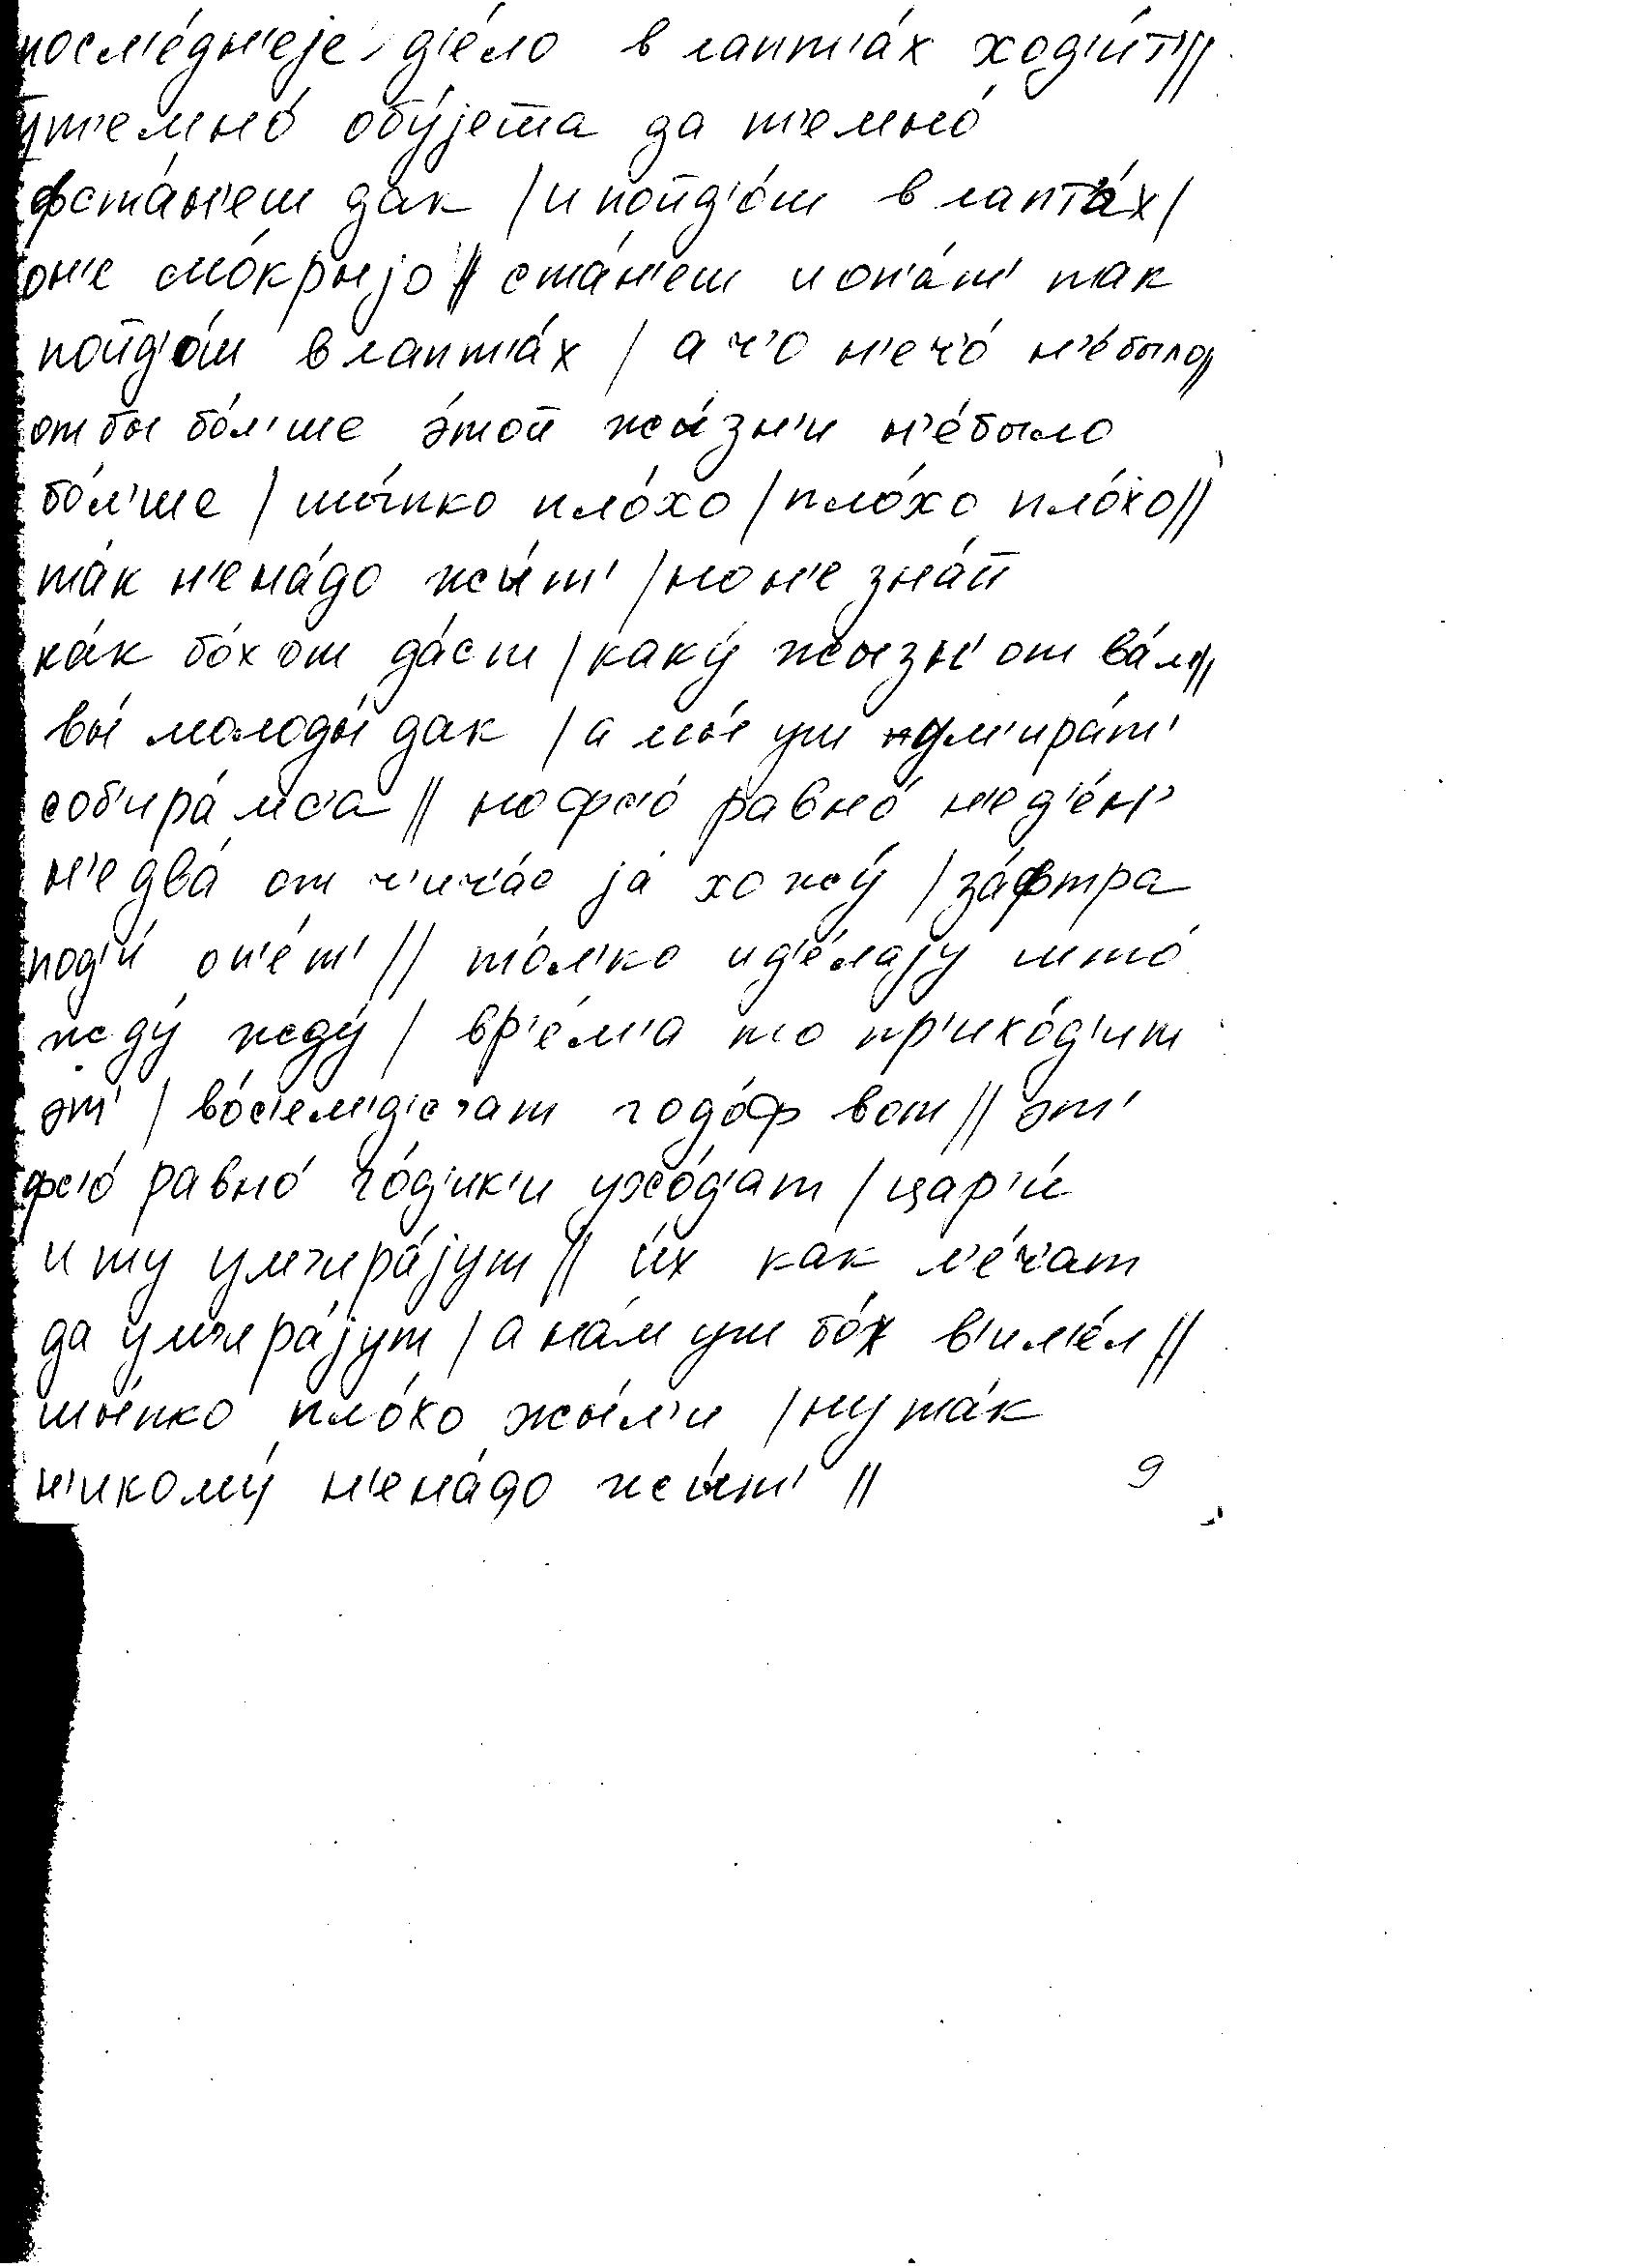 посл'е́дн'еjе д'е́ло в лапт'а́х ход'и́т'//
ут'емно́ обу́jетa да т'емно́
фста́н'еш дак / и пойд'о́ш в лапт'а́х /
он'е мо́крыjо // ста́н'еш и оп'а́т' так
пойд'о́ш в лапт'а́х / а ч'о н'еч'о́ н'е́было //
от бы бо́л'ше э́той жы́зн'и н'е́было
бо́л'ше / шы́пко пло́хо / пло́хо пло́хо //
та́к н'ена́до жы́т' / но н'е зна́й
ка́к бо́х от да́ст / каку́ жызн' от ва́м //
вы́ молоды́ дак / а мы́ уш ум'ира́т'
соб'ира́мс'а // но фс'о́ равно́ н'е д'е́н'
н'е два́ от ч'ич'а́с jа́ хожу́ / за́фтра
под'и́ оп'е́т' // то́л'ко и д'е́лаjу што́
жду́ жду́ / вр'е́м'а то пр'ихо́д'ит
эт' / во́с'ем'д'ес'ат годо́ф вот // эт'
фс'о́ равно́ го́д'ик'и ухо́д'ат / цар'и́
и ту ум'ира́jут // и́х как л'е́ч'ат
да ум'ира́jут / а на́м уш бо́х в'ил'е́л //
шы́пко пло́хо жы́л'и / ну та́к
н'икому́ н'ена́до жы́т' //
9